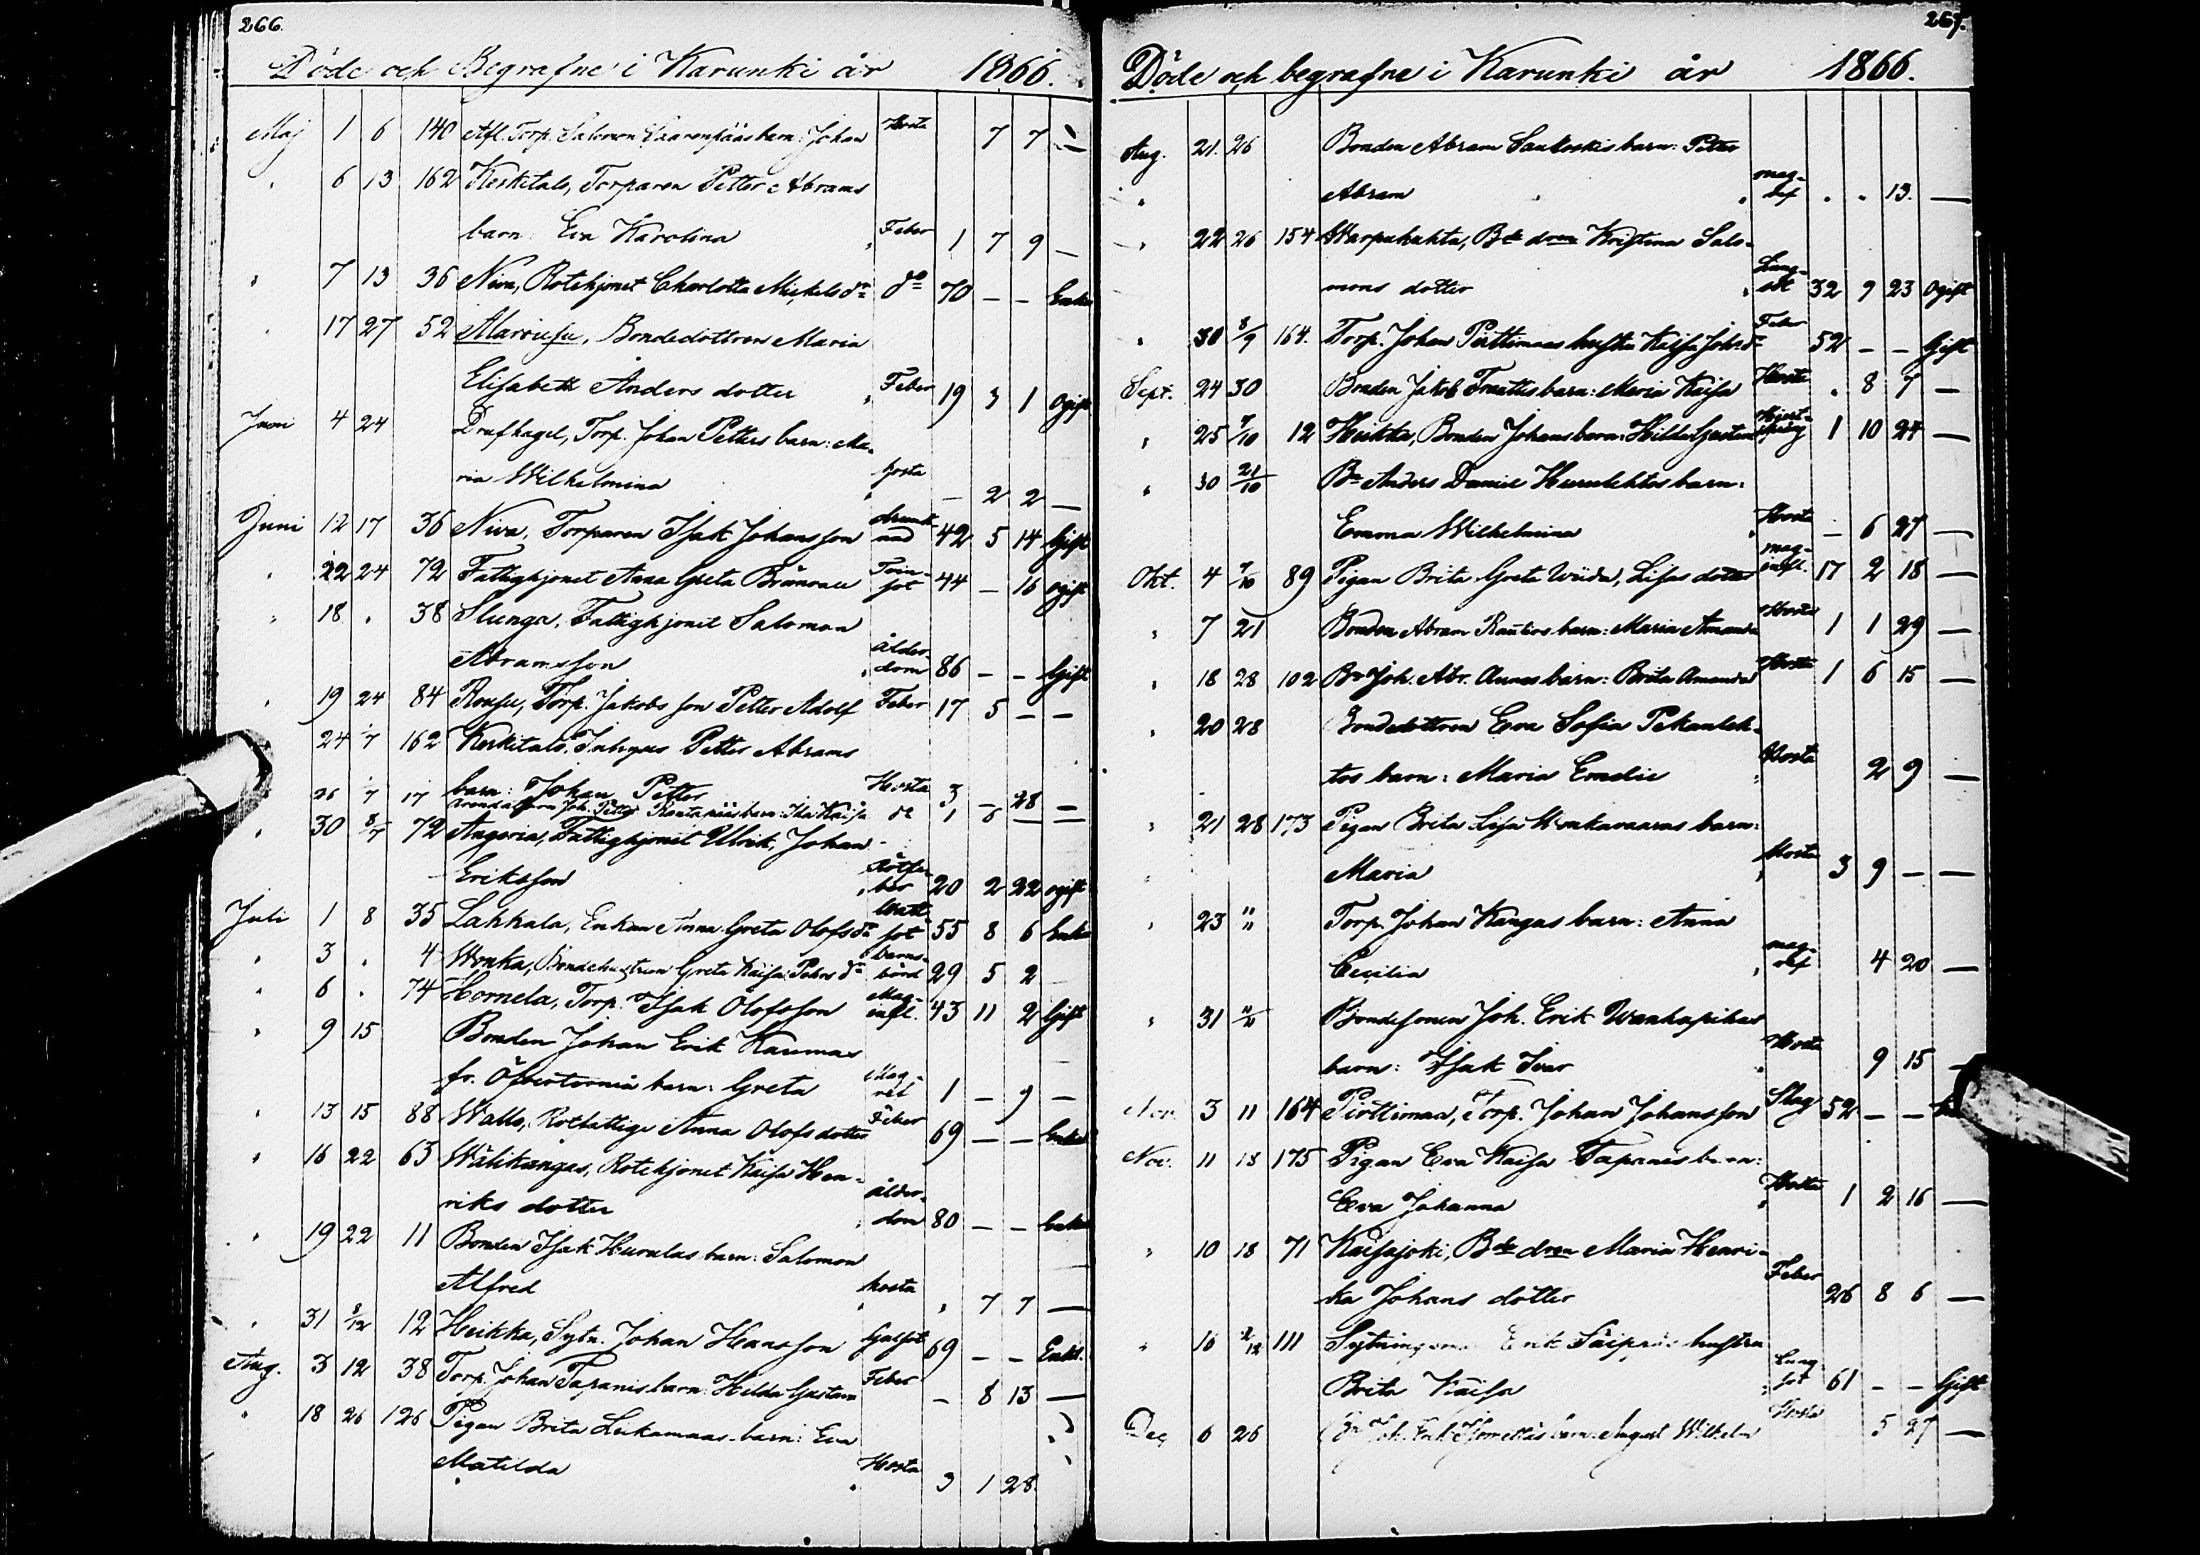 266.
Döde och Begrafne i Karunki år 1866.
Maj 1 6 140 Afl. Torp. Salomon Vaaranpääs barn: Johan Hosta 7 7 —
" 6 13 162 Keskitalo, Torparen Petter Abrams
barn: Eva Karolina Feber 1 7 9 —
" 7 13 36 Niva, Rotehjonet Charlotta Mickelsdr do 70 — — Enka
17 27 52 , Bondedottren Maria
Elisabeth Anders dotter Feber 19 3 1 Ogift
Juni 4 24 Drufhagel, Torp. Johan Petters barn: Ma-
ria Wilhelmina hosta — 2 2 —
Juni 12 17 36 Niva, Torparen Isak Johansson drunk-nad 42 5 14 Gift
" 22 24 72 Fattighjonet Anna Greta Tvin-sot 44 — 16 ogift
" 18 " 38 Slunga, Fattighjonet Salomon
Abramsson ålder-dom 86 — — Gift
" 19 24 84 Rousu, Torp. Jakobs son Petter Adolf Feber 17 5 — —
24 1/7 162 Keskitalo, Inhyses Petter Abrams
barn: Johan Petter Hosta 3 — 28 —
26 1/7 17 Joh. Petter Rantapääs barn: Ida Kaisa do 1 6 — —
" 30 8/7 72 Angeria, Fattighjonet Ulrik Johan
Eriksson Rötfe-ber 20 2 22 ogift
Juli 1 8 35 Lakkala, Enkan Anna Greta Olofsdr Watt-sot 55 8 6 Enka
" 3 " 4 Wonka, Bondehustrun Greta Kaisa Pehrsdr barns-börd 29 5 2
" 6 " 74 Hornela, Torp. Isak Olofsson Mag-infl. 43 11 2 Gift
" 9 15 Bonden Johan Erik Kaumas
fr. Öfvertorneå barn: Greta Mag-ref 1 — 9 —
" 13 15 88 Wallo, Rotfattiga Anna Olofsdotter Feber 69 — — Enka
" 16 22 63 Wälikangas, Rotehjonet Kaisa Hen-
riks dotter ålder-dom 80 — — Enka
" 19 22 11 Bonden Isak Hurulas barn: Salomon
Alfred hosta " 7 7 —
" 31 8/12 12 Heikka, Sytn. Johan Hansson 69 — — Enkl.
Aug. 3 12 38 Torp. Johan Tapanis barn: Hilda Gustava Feber — 8 13 —
" 18 26 126 Pigan Brita Leukamaas barn: Eva
Matilda Hosta 3 1 28
267.
Döde och begrafne i Karunki år 1866.
Aug. 21. 26 Bonden Abram barn: Petter
" Abram mag-ref " " 13. —
" 22 26 154 Warpukahta, Bde dren Kristina Salo-
mons dotter Lung-sot 32 9 23 Ogift
" 30 8/9 164. Torp. Johan Pirttimaas hustru Kaisa Johsdr Feber 52 — — Gift
Sept. 24 30 Bonden Jakob barn: Maria Kaisa Hosta " 8 7 —
" 25 7/10 12 Heikka, Bonden Johans barn: Hilda Gustava 1 10 24 —
" 30 21/10 Bn Anders Daniel Hurulehtos barn:
Emma Wilhelmina Hosta — 6 27 —
Okt. 4 7/10 89 Pigan Brita Greta , Lisas dotter mag-infl. 17 2 18 —
" 7 21 Bonden Abram Rautios barn: Maria Amanda Hosta 1 1 29 —
" 18 28 102 Bn Joh. Abr. Aunes barn: Brita Amanda Hosta 1 6 15 —
" 20 28 Bondedottren Eva Sofia Pekanleh-
tos barn: Maria Emelie Hosta 2 9 —
" 21 28 173 Pigan Brita Lisa barn:
Maria Hosta 3 9 — —
" 23 " Torp. Johan Kangas barn: Anna
Cecilia mag-ref 4 20 —
" 31 11/11 Bondesonen Joh. Erik Wanhapihas
barn: Isak Ivar Hosta 9 15 —
Nov. 3 11 164 Pirttimaa, Torp. Johan Johansson Slag 52 — —
Nov. 11 18 175 Pigan Eva Kaisa Tapanis barn:
Eva Johanna Hosta 1 2 16 —
" 10 18 71 Kaisajoki, Bde dren Maria Henri-
ka Johans dotter Feber 26 8 6 —
" 16 2/12 111 Erik hustru
Brita Kaisa Lung-sot 61 — — Gift
Dec 6 26 Bn Joh. Erik barn: August Wilhelm Hosta 5 27 —